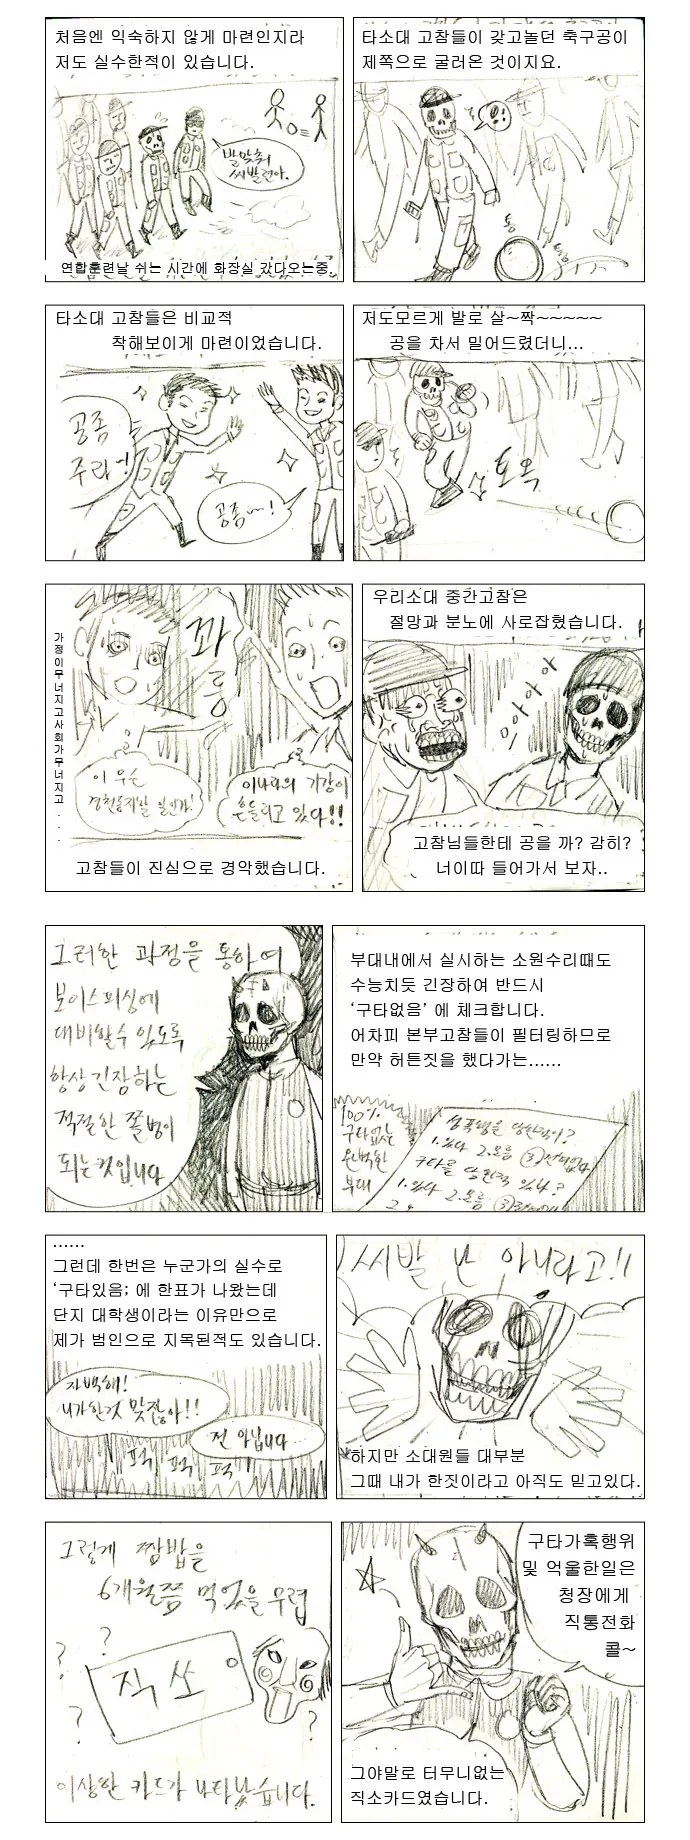 처음엔 익숙하지 않게 마련인지라
저도 실수한적이 있습니다.
발맞춰
씨발련아.
연합훈련날 쉬는 시간에 화장실 갔다오는중.
타소대 고참들이 갖고놀던 축구공이
제쪽으로 굴러온 것이지요.
통
통
타소대 고참들은 비교적
착해보이게 마련이었습니다.
공좀
주라~!
공좀~!
저도모르게 발로 살~짝~~~~~
공을 차서 밀어드렸더니...
토옥
가정이무너지고사회가무너지고...
콰
롱
이 무슨
경천동지할 일인가!
이나라의 기강이
흔들리고 있다!!
고참들이 진심으로 경악했습니다.
우리소대 중간고참은
절망과 분노에 사로잡혔습니다.
으아아아
고참님들한테 공을 까? 감히?
너이따 들어가서 보자..
그러한 과정을 통하여
보이스피싱에
대비할수 있도록
항상 긴장하는
적절한 쫄병이
되는것입니다
부대내에서 실시하는 소원수리때도
수능치듯 긴장하여 반드시
‘구타없음’ 에 체크합니다.
어차피 본부고참들이 필터링하므로
만약 허튼짓을 했다가는......
100%
구타없는
완벽한
부대
성폭행을 당한적이?
1.있다 2.모름 ③전혀없다
구타를 당한적 있나?
1.있다 2.모름
......
그런데 한번은 누군가의 실수로
‘구타있음; 에 한표가 나왔는데
단지 대학생이라는 이유만으로
제가 범인으로 지목된적도 있습니다.
자백해!
니가한것 맞잖아!!
전 아닙니다
퍽 퍽 퍽
씨발 난 아니라고!!
하지만 소대원들 대부분
그때 내가 한짓이라고 아직도 믿고있다.
그렇게 짬밥을
6개월쯤 먹었을 무렵
?
?
?
?
직쏘
이상한 카드가 나타났습니다.
구타가혹행위
및 억울한일은
청장에게
직통전화
콜~
그야말로 터무니없는
직소카드였습니다.